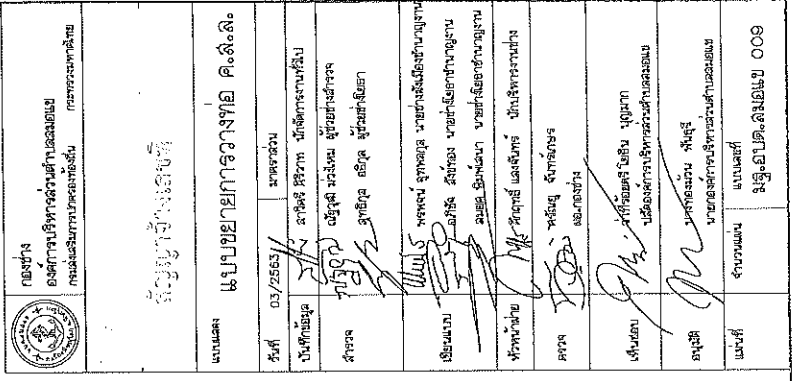 กองช่าง
องค์การบริหารส่วนตำบลสมอแข
กรมส่งเสริมการปกครองท้องถิ่น กระทรวงมหาดไทย
สัญญาจ้างเลขที่
แบบแสดง
แบบขยายการวางท่อ ค.ส.ล.
วันที่ 03/2563 มาตราส่วน
บันทึกข้อมูล สาวิตรี นักจัดการงานทั่วไป
สำรวจ ณัฐวุฒิ ม่วงใหม ผู้ช่วยช่างสำรวจ
สุทธิกุล อธิกุล ผู้ช่วยช่างโยธา
เขียนแบบ พรพจน์ นายช่างผังเมืองชำนาญงาน
อภิชัด สังข์ทอง นายช่างโยธาชำนาญงาน
สมยศ พิมพ์เสนา นายช่างโยธาชำนาญงาน
หัวหน้าฝ่าย ศักฤทธิ์ แสงจันทร์ นักบริหารงานช่าง
ตรวจ จันทร์เกษร
ผอ.กองช่าง
เห็นชอบ ว่าที่ร้อยตรี โยธิน บุญมาก
ปลัดองค์การบริหารส่วนตำบลสมอแข
อนุมัติ นางทองม้วน พันธุรี
นายกองค์การบริหารส่วนตำบลสมอแข
แผ่นที่ จำนวนแผ่น แบบเลขที่
มฐ.อบต.สมอแข 009